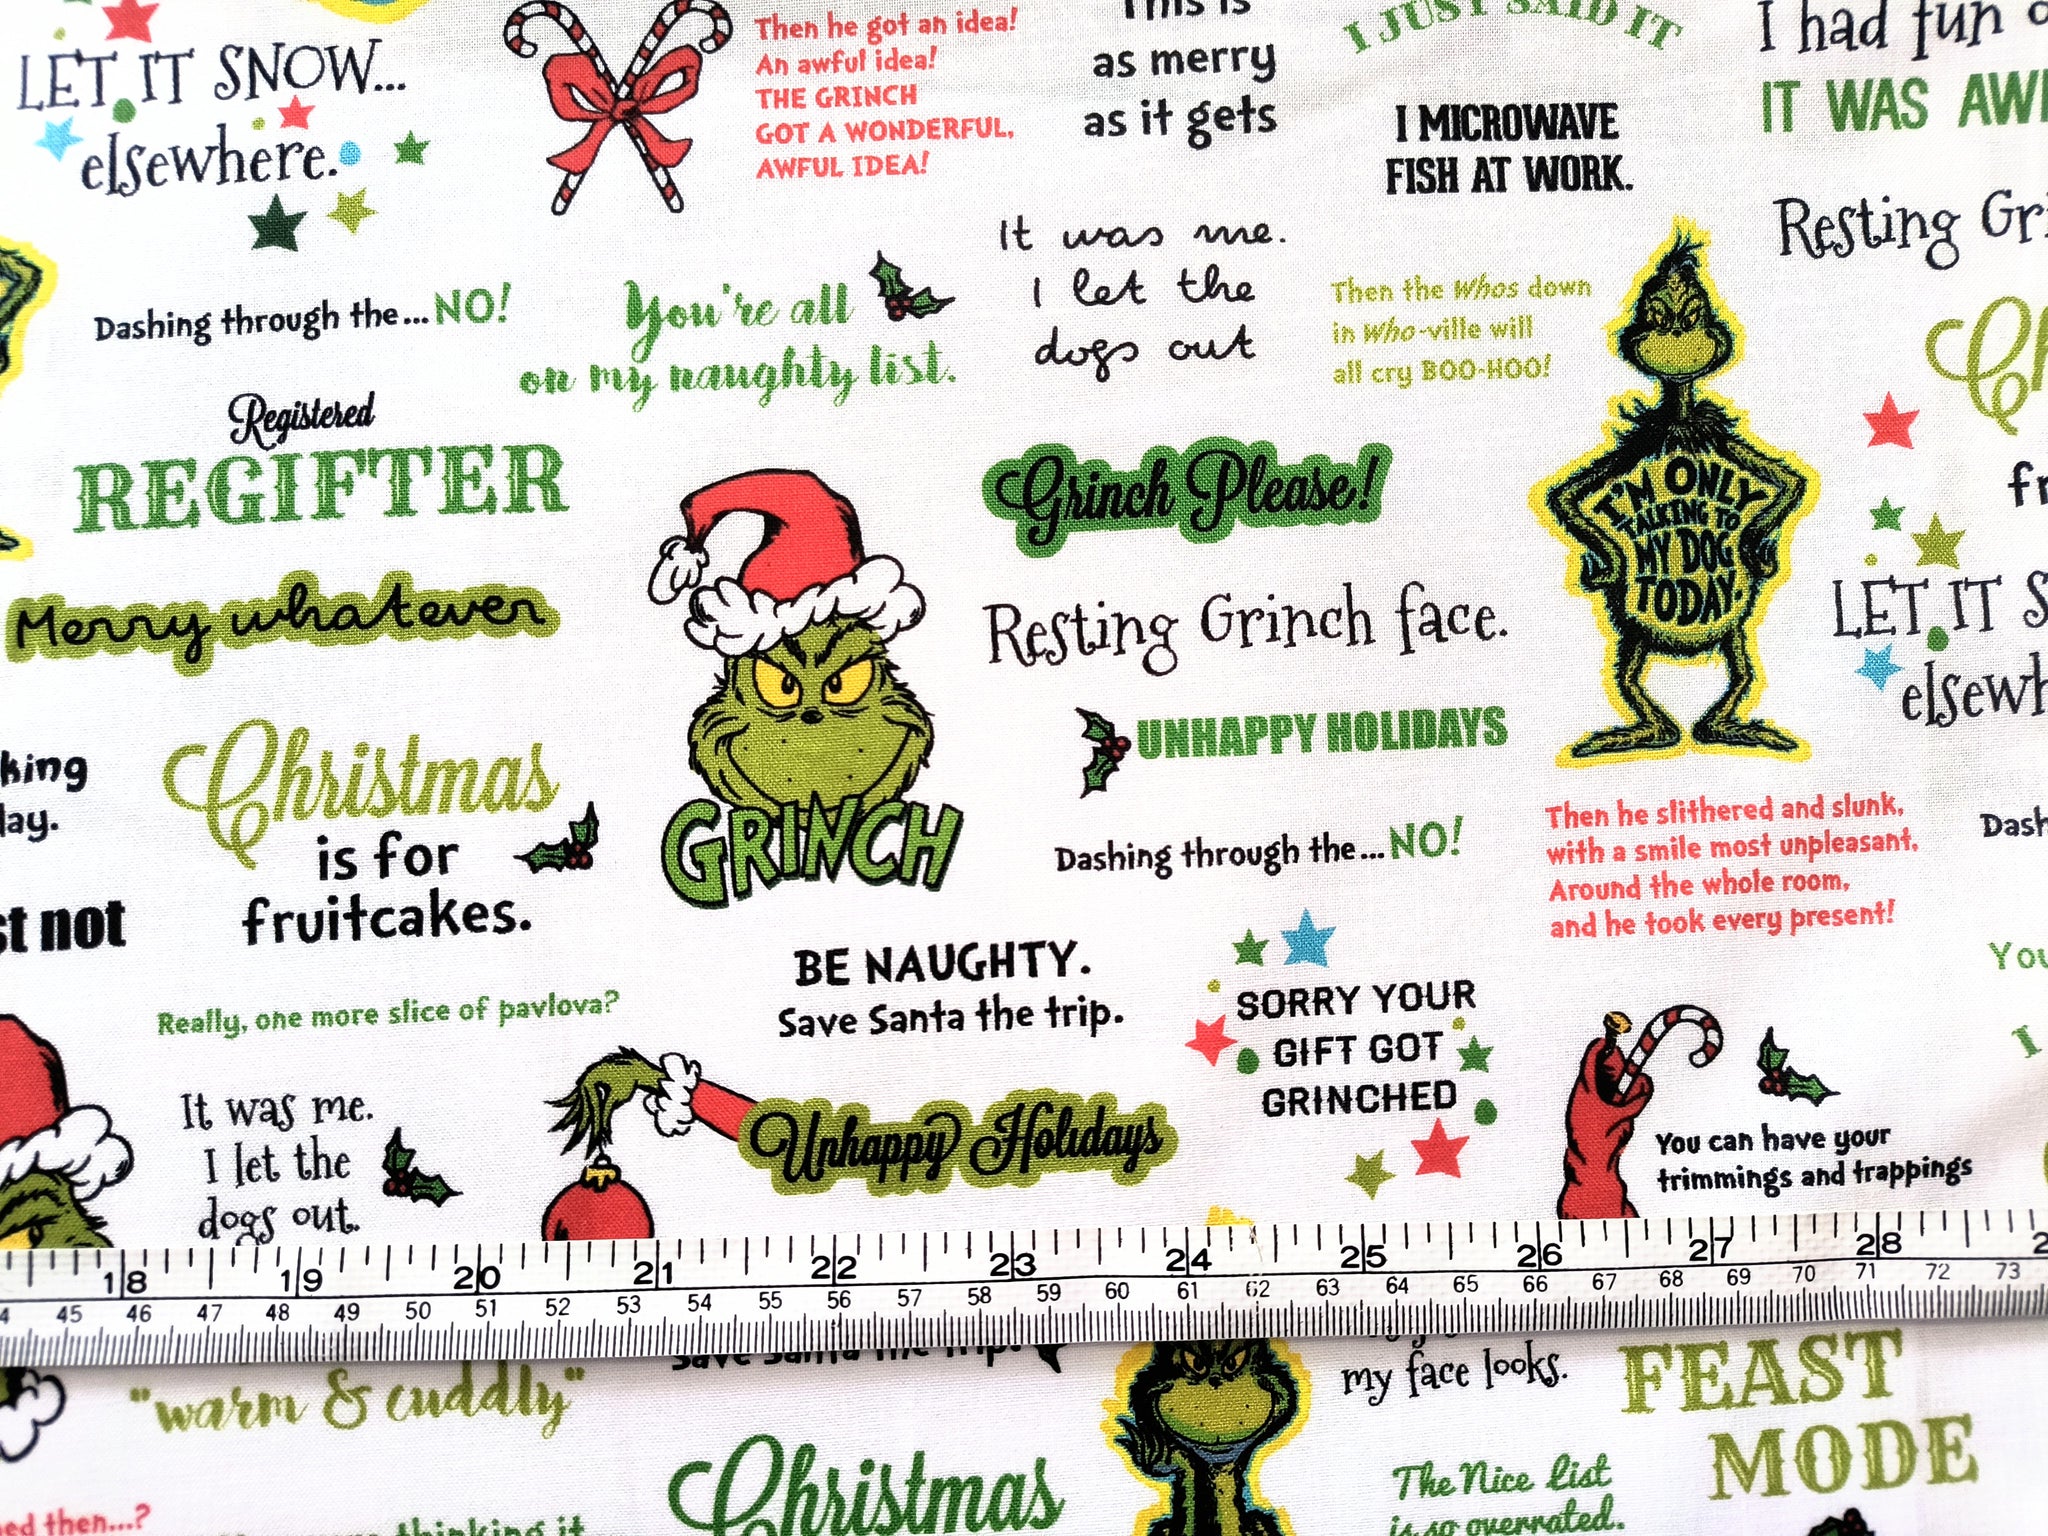 LET IT SNOW...
elsewhere.
Then he got an idea!
An awful idea!
THE GRINCH
GOT A WONDERFUL,
AWFUL IDEA!
This is
as merry
as it gets
I JUST SAID IT
I MICROWAVE
FISH AT WORK.
I had fun
IT WAS
Resting
Dashing through the...NO!
You're all
on my naughty list.
It was me.
I let the
dogs out
Then the Whos down
in Who-ville will
all cry BOO-HOO!
Registered
REGIFTER
Grinch Please!
I'M ONLY
TALKING TO
MY DOG
TODAY.
Merry whatever
Resting Grinch face.
LET IT
UNHAPPY HOLIDAYS
Christmas
is for
fruitcakes.
GRINCH
Dashing through the...NO!
Then he slithered and slunk,
with a smile most unpleasant,
Around the whole room,
and he took every present!
not
BE NAUGHTY.
Save Santa the trip.
SORRY YOUR
GIFT GOT
GRINCHED
Really, one more slice of pavlova?
It was me.
I let the
dogs out.
Unhappy Holidays
You can have your
trimmings and trappings
18 19 20 21 22 23 24 25 26 27 28
45 46 47 48 49 50 51 52 53 54 55 56 57 58 59 60 61 62 63 64 65 66 67 68 69 70 71 72 73
Save Santa the trip.
my face looks.
"warm & cuddly"
FEAST
MODE
Christmas
The Nice List
is so overrated.
then...?
thinking it